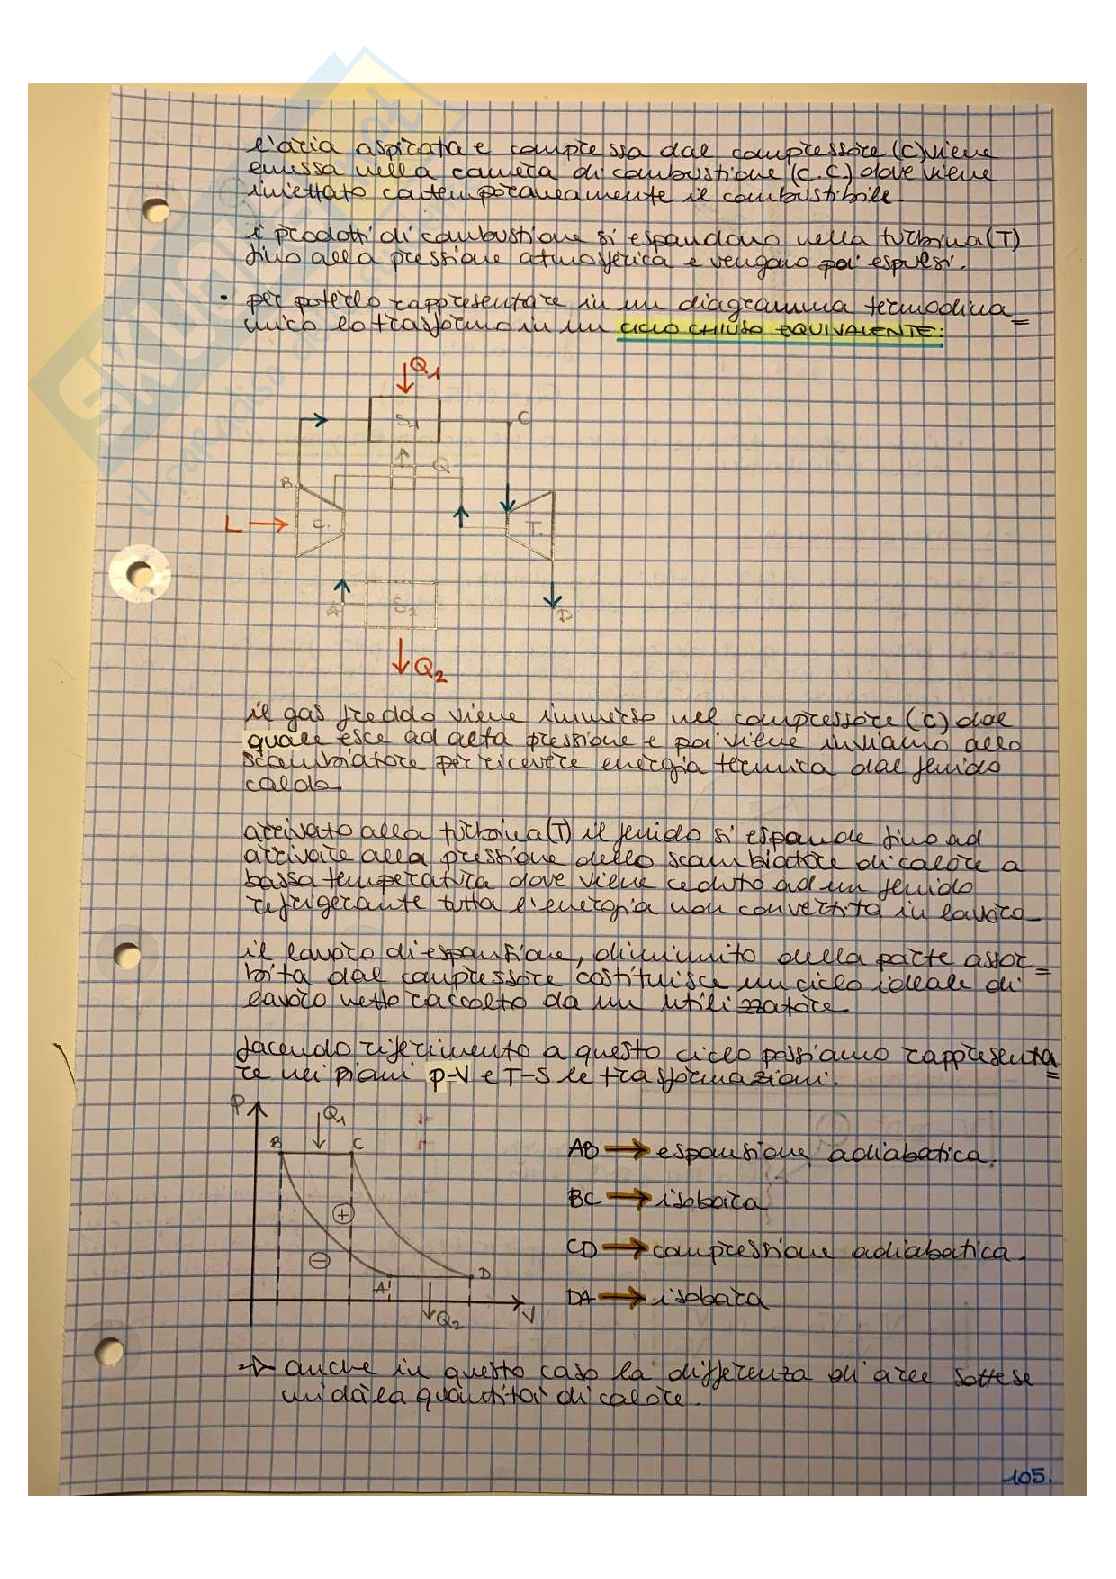 l'aria aspirata e compressa dal compressore (C) viene
emessa nella camera di combustione (C.C) dove viene
iniettato contemporaneamente il combustibile
i prodotti di combustione si espandono nella turbina (T)
fino alla pressione atmosferica e vengono poi espulsi.
• per poterlo rappresentare in un diagramma termodina=
mico lo trasformo in un CICLO CHIUSO EQUIVALENTE:
Q1
S1
C
Q
B
L
C.
T.
A
S2
D
Q2
il gas freddo viene immerso nel compressore (C) dal
quale esce ad alta pressione e poi viene inviamo allo
scambiatore per ricevere energia termica dal fluido
caldo
arrivato alla turbina (T) il fluido si espande fino ad
arrivare alla pressione dello scambiatore di calore a
bassa temperatura dove viene ceduto ad un fluido
refrigerante tutta l'energia non convertita in lavoro
il lavoro di espansione, diminuito della parte assor=
bita dal compressore costituisce un ciclo ideale di
lavoro netto raccolto da un utilizzatore
facendo riferimento a questo ciclo possiamo rappresenta=
re nei piani p-V e T-S le trasformazioni.
P
Q1
B
C
+
-
A
D
Q2
V
AB → espansione adiabatica.
BC → isobara
CD → compressione adiabatica.
DA → isobara
→ anche in questo caso la differenza di aree sottese
mi dà la quantità di calore.
105.